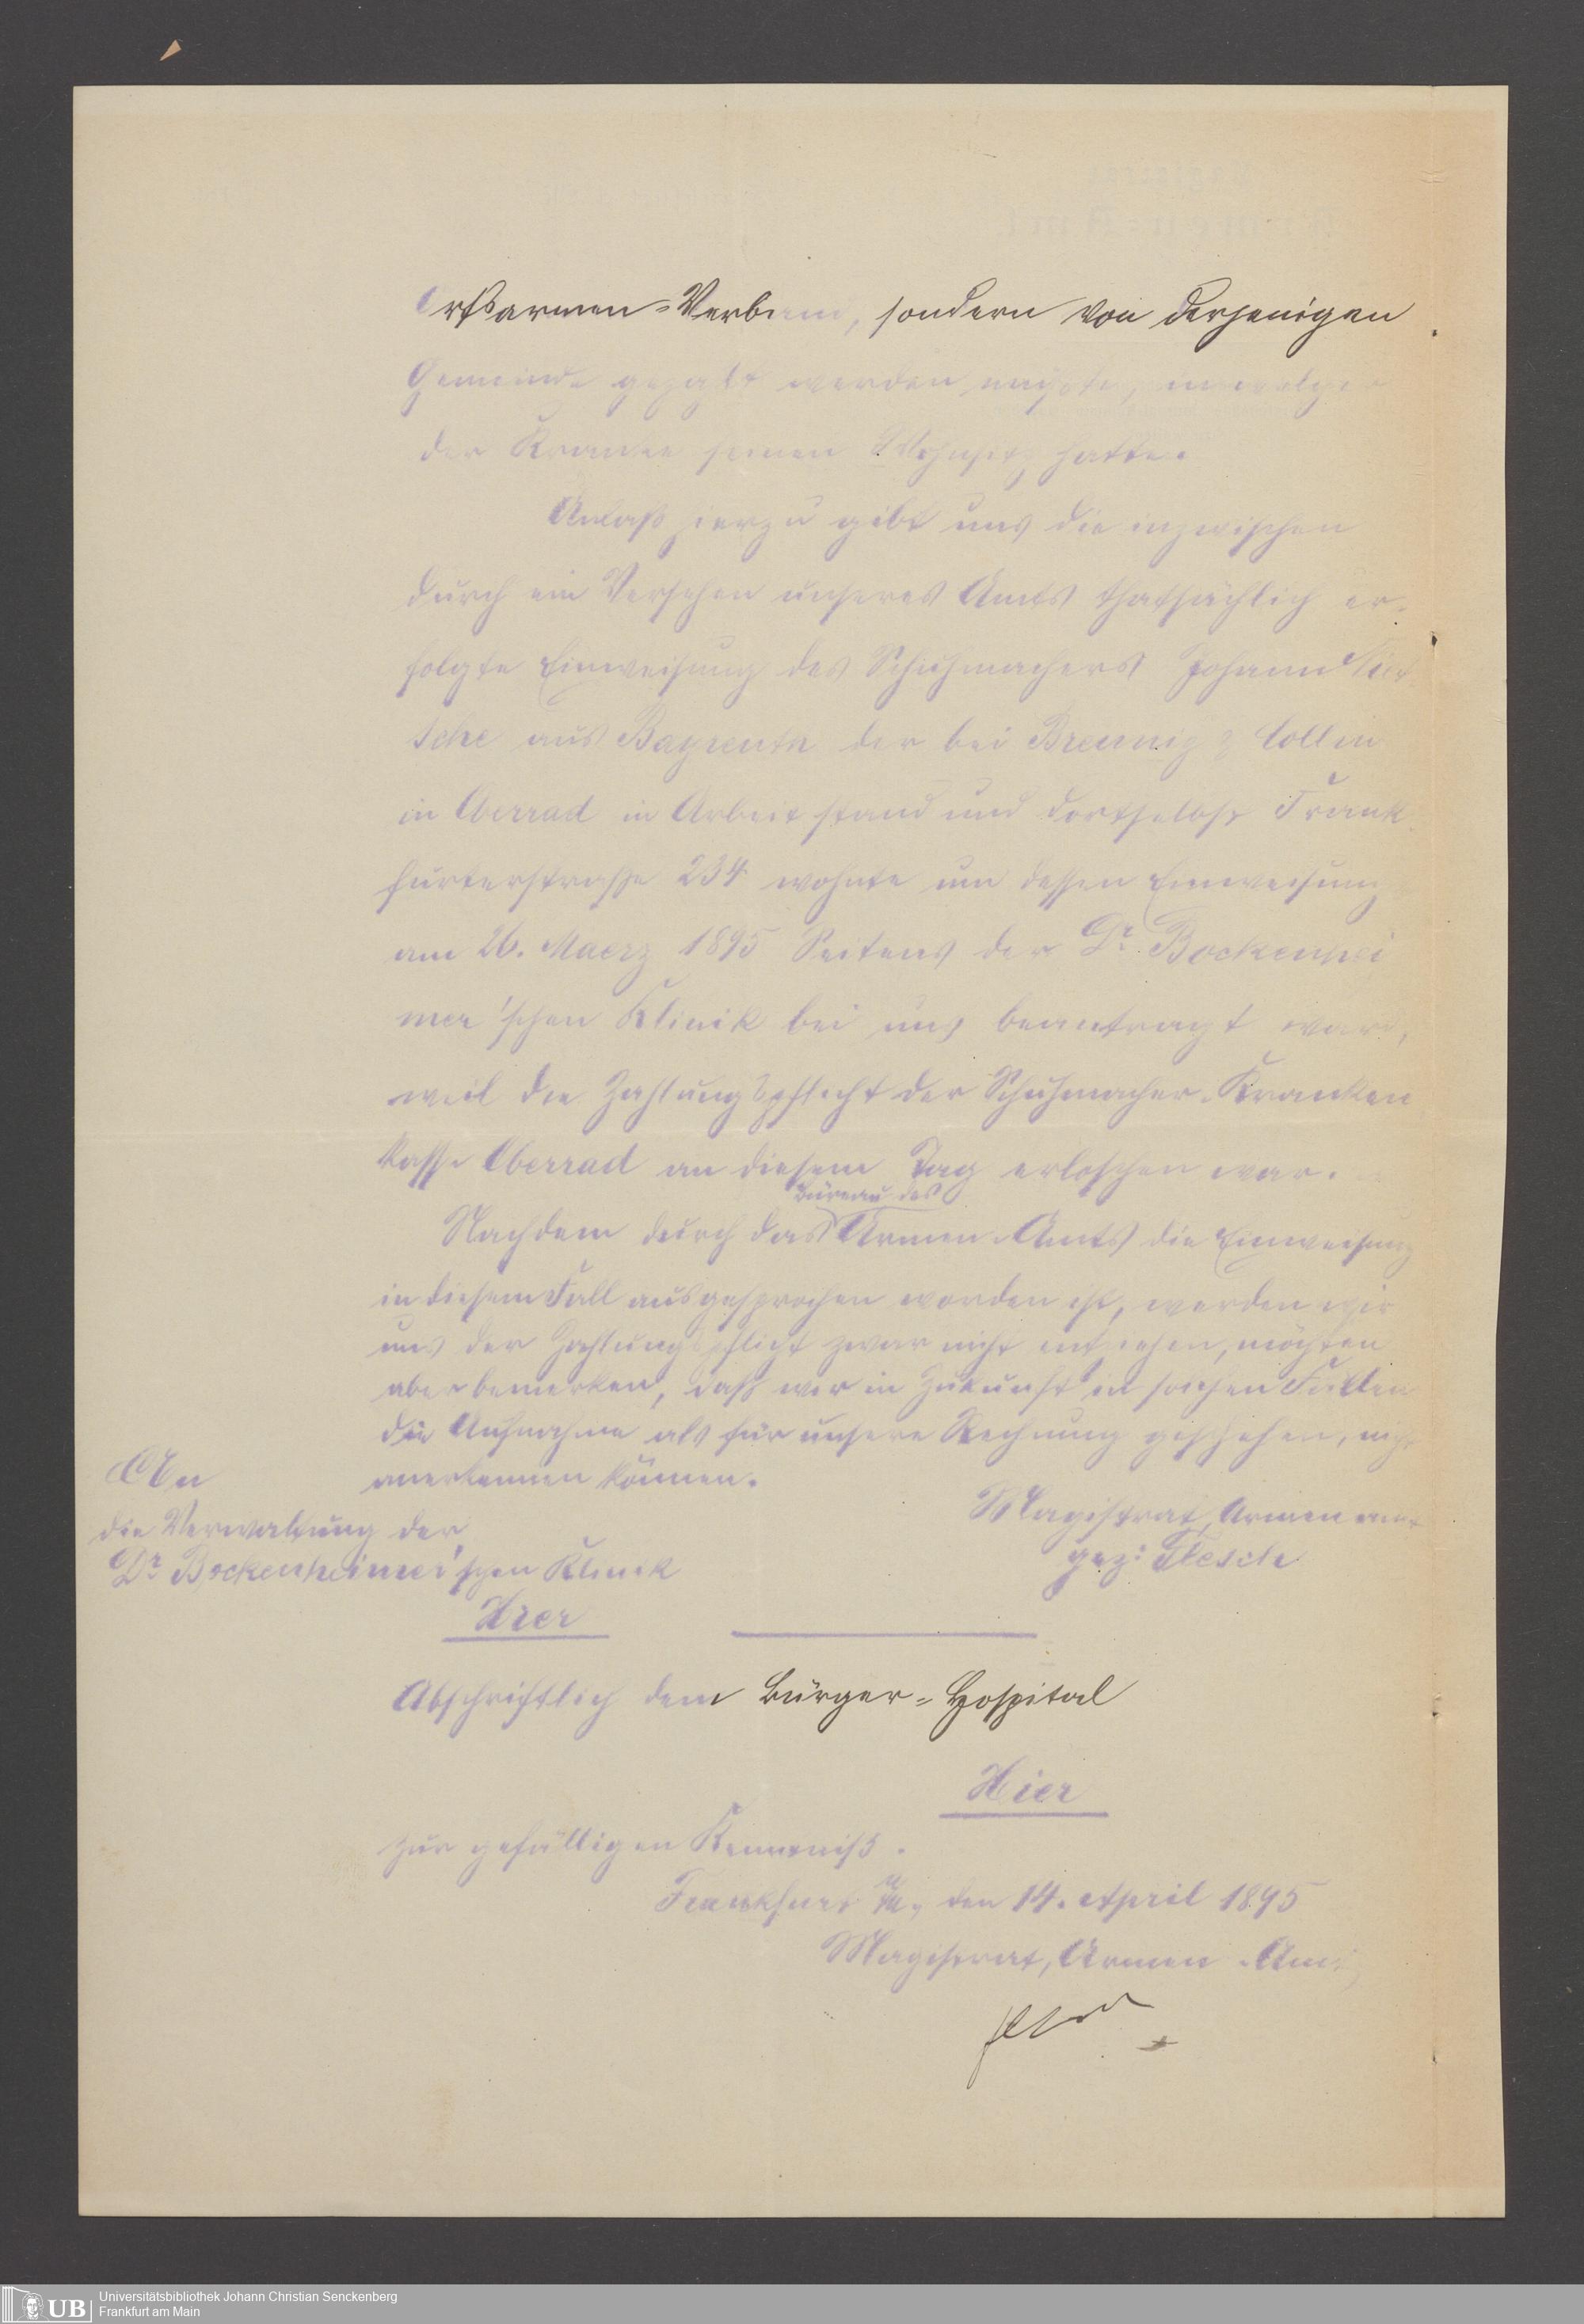 Ortsarmen-Verband, sondern von derjenigen
Gemeinde gezahlt werden müßte, in welcher
der Kranke seinen Wohnsitz hatte.
Anlaß hierzu gibt uns die inzwischen
durch ein Versehen unseres Amts thatsächlich er-
folgte Einweisung des Schuhmachers Johann
tsche aus Bayreuth der bei Breunig & Collin
in Oberrad in Arbeit stand und dortselbst Frank
furterstraße 234 wohnte um dessen Einweisung
am 26. Maerz 1895 Seitens der Dr. Bockenhei
mer'schen Klinik bei uns beantragt ward,
weil die Zahlungspflicht der Schuhmacher-Kranken
kasse Oberrad an diesem Tag erloschen war.
Büreau des
Nachdem durch das Armen-Amts die Einweisung
in diesem Fall ausgesprochen worden ist, werden wir
uns der Zahlungspflicht zwar nicht entziehen, möchten
aber bemerken, daß wir in Zukunft in solchen Fällen
die Aufnahme als für unsere Rechnung geschehen, nicht
anerkennen können.
An
die Verwaltung der
Dr. Bockenheimer'schen Klinik
Hier
Magistrat, Armenamt
gez: Flesch
Abschriftlich dem Bürger-Hospital
Hier
zur gefälligen Kenntniß.
Frankfurt a/M., den 14. April 1895
Magistrat, Armen-Amt
Universitätsbibliothek Johann Christian Senckenberg
Frankfurt am Main
UB